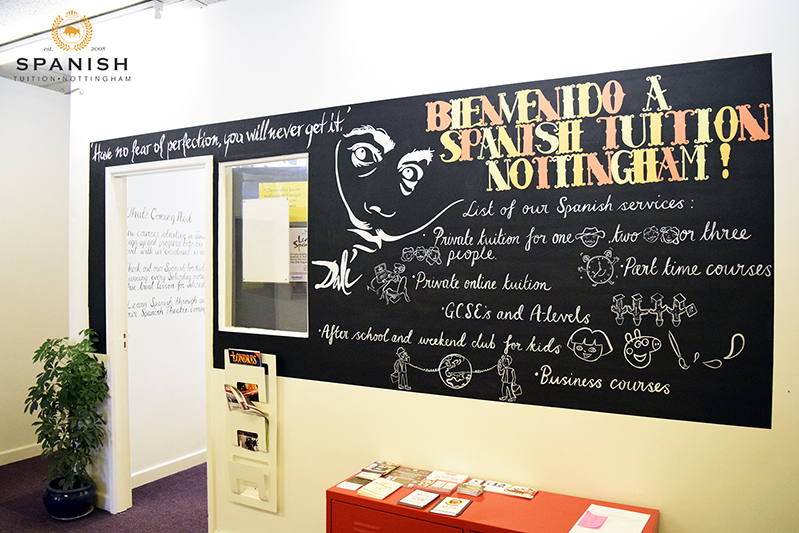 est. 2008
SPANISH
TUITION•NOTTINGHAM
'Have no fear of perfection, you will never get it.'
BIENVENIDO A
SPANISH TUITION
NOTTINGHAM!
Dali
List of our Spanish services:
• Private tuition for one, two or three
people
• Part time courses
• Private online tuition
• GCSE's and A-levels
• After school and weekend club for kids
• Business courses
Whats Coming Next
courses starting in
sign up and progress onto the
with us
check out our Spanish for
running every Saturday
free trial lesson for
Learn Spanish through
our Spanish Theatre
LONDRES